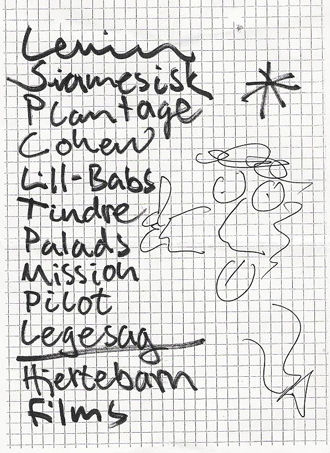 Lenin
Siamesisk
Plantage
Cohen
Lill-Babs
Tindre
Palads
Mission
Pilot
Legesag
Hjertebarn
Films